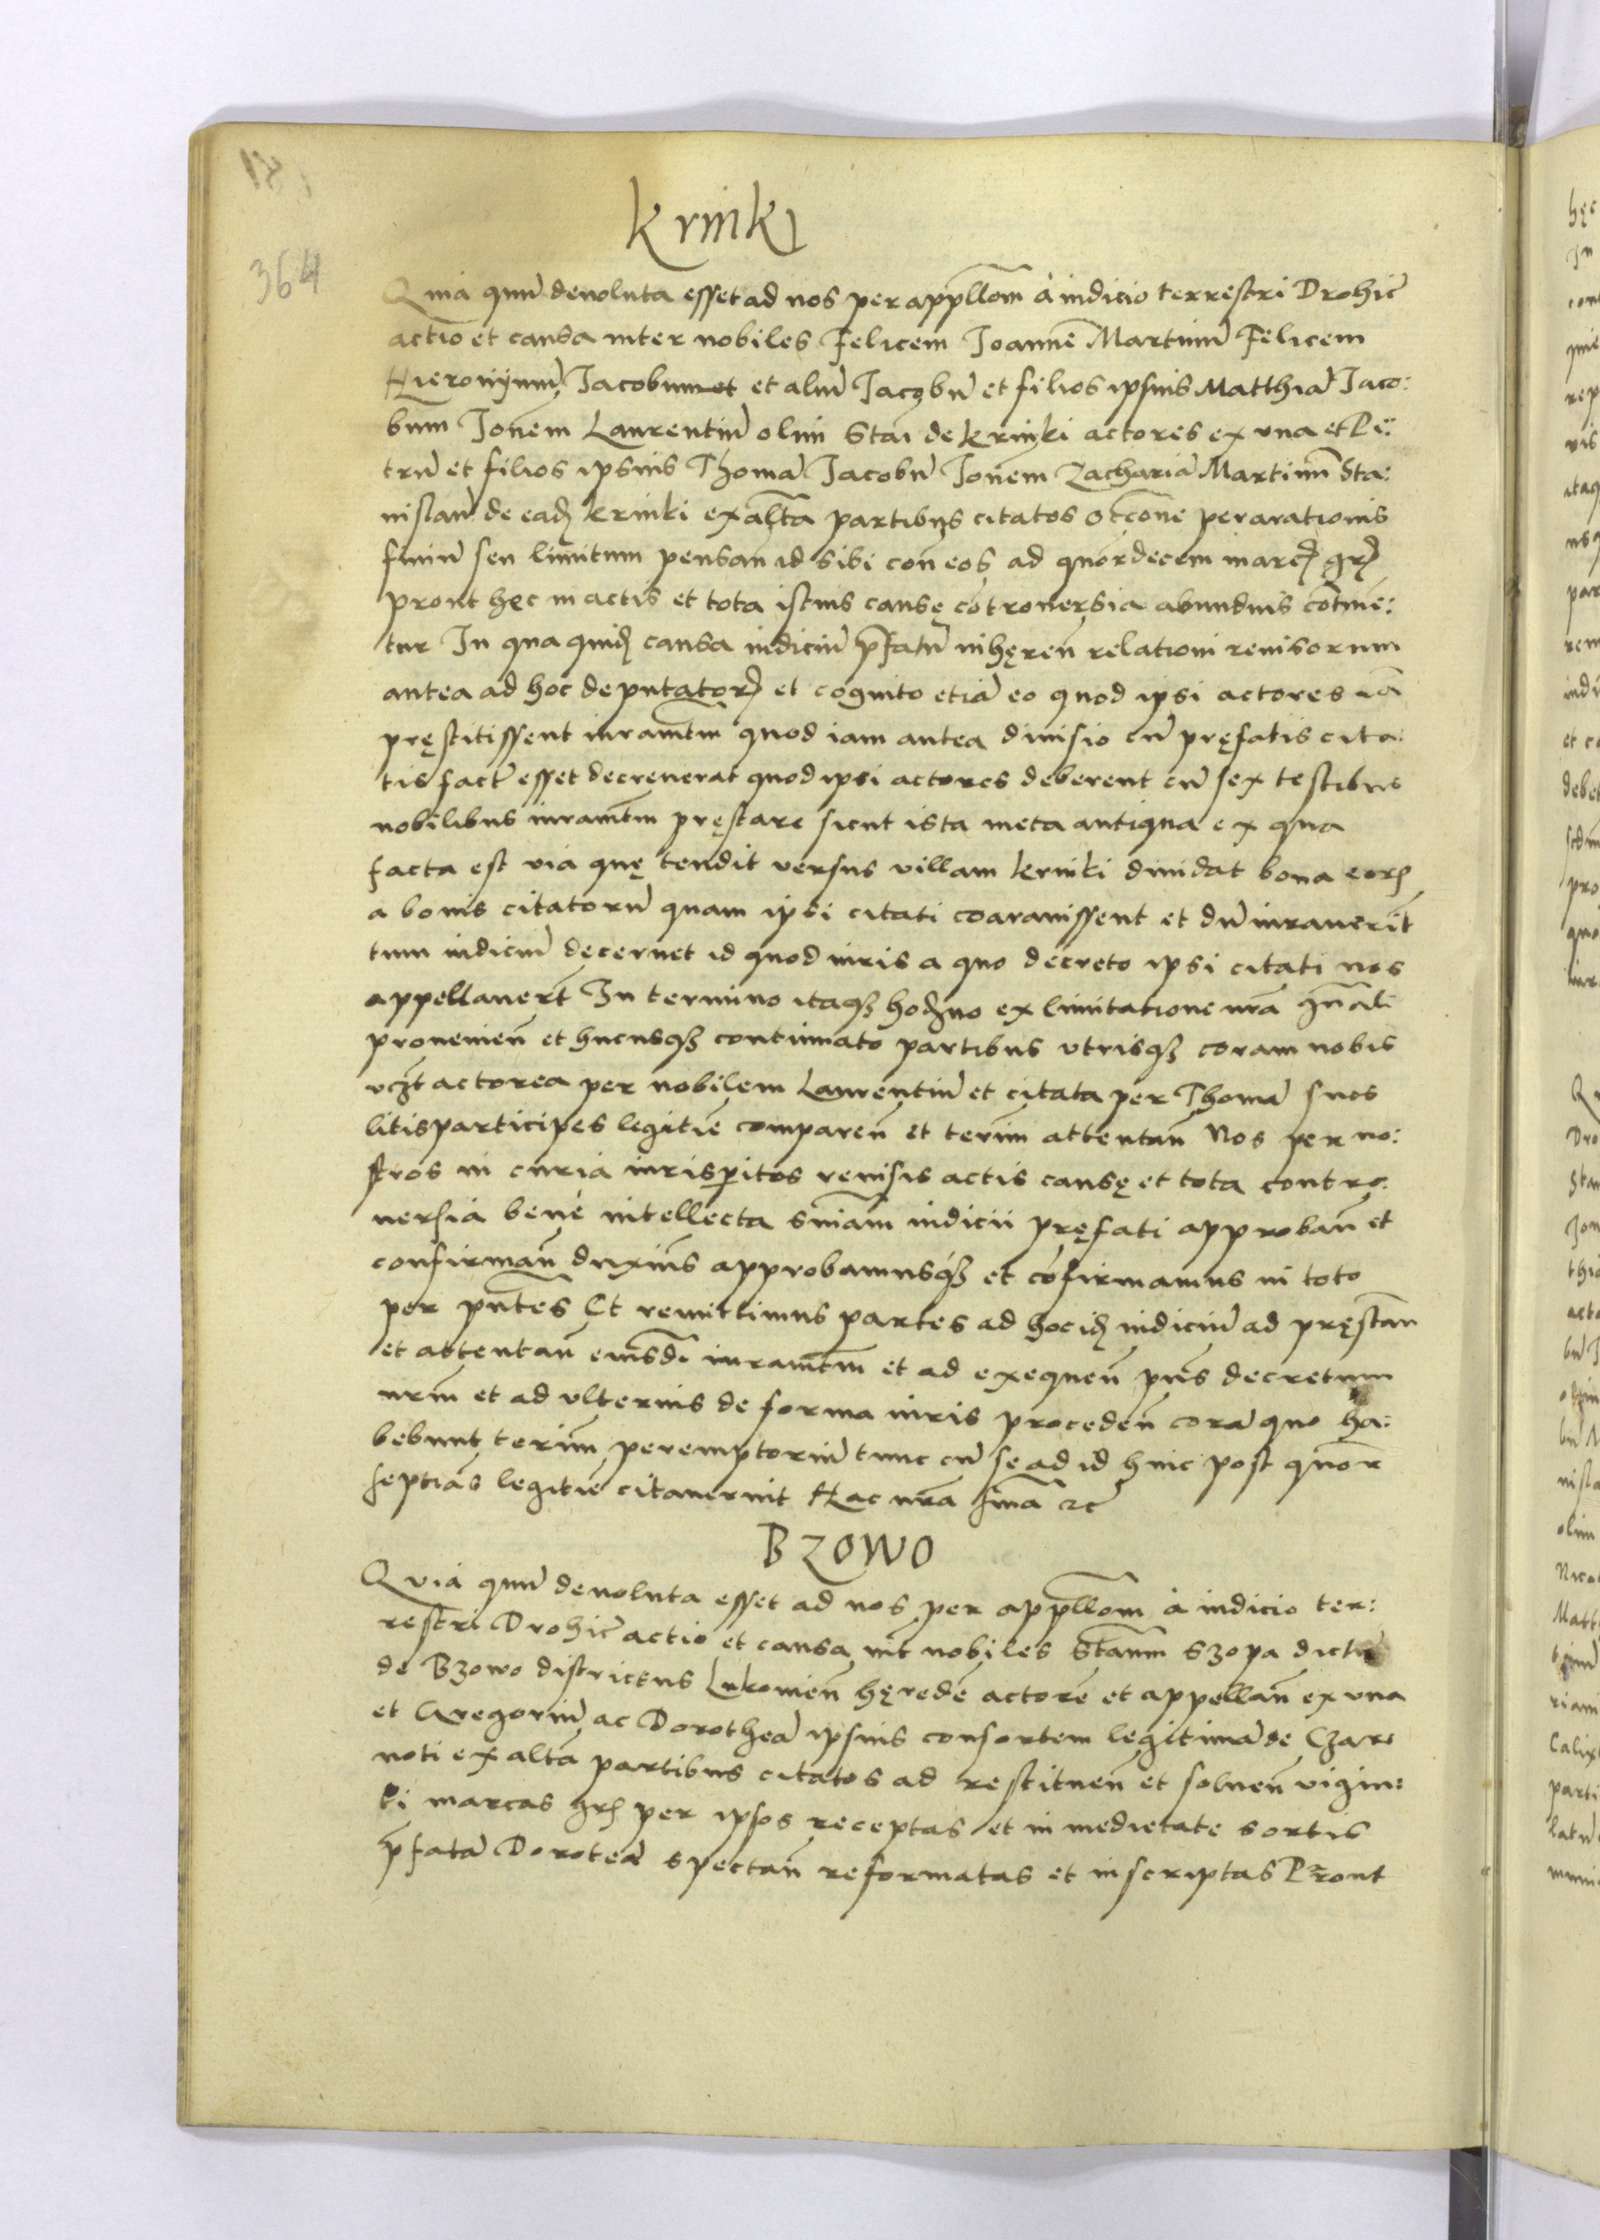 364
Krinki
Quia quu̅ deuoluta esset ad nos per app̅llom̅ à iudicio terrestri Drohic̅
actio et causa inter nobiles Felicem Joanne̅ Martinu̅ Felicem
Hieronijmu̅ Jacobum et aliu̅ Jacobu̅ et filios ipsius Matthia̅ Jaco:
bum Jone̅m Laurentiu̅ olim Stai de Krinki actores ex una et Pe:
tru̅ et filios ipsius Thoma̅ Jacobu̅ Jone̅m Zacharia̅ Martinu̅ Sta:
nislau̅ de ead̅ Krinki ex alt̅a partibus citatos occ̅one perarationis
finiu̅ seu limitum pensan̅ id sibi con̅ eos ad quor̅decem marc̅ gr̅
prout hęc in actis et tota istius causę co̅trouersia abundius co̅tine:
tur In qua quid̅ causa iudiciu̅ p̅fatu̅ inhęren̅ relationi reuisorum
antea ad hoc deputator̅ et cognito etia̅ eo quod ipsi actores ia̅
pręstitissent iuram̅tm quod iam antea diuisio cu̅ pręfatis cita:
tis fact̅ esset decreuerat quod ipsi actores deberent cu̅ sex testibus
nobilibus iuram̅tm pręstare sicut ista meta antiqua ex qua
facta est via quę tendit versus villam Krinki diuidat bona eor̅
a bonis citatoru̅ quam ipsi citati coarauissent et du̅ iurauerit̅
tum iudiciu̅ decernet id quod iuris a quo decreto ipsi citati nos
appellauer̅t In termino itaqȝ hod̅no ex limitatione nr̅a gn̅ali
prouenien̅ et hucusqȝ continuato partibus utrisqȝ coram nobis
vcz̅t actorea per nobilem Laurentiu̅ et citata per Thoma̅ suos
litisparticipes legitie̅ comparen̅ et teri̅m attentan̅ Nos per no:
stros in curia iurisp̅itos reuisis actis causę et tota contro:
uersia benè intellecta sn̅iam iudicii pręfati approban̅ et
confirman̅ duxim̅s approbamusqȝ et co̅firmamus in toto
per pn̅tes Et remittimus partes ad hoc id̅ iudiciu̅ ad pręstan̅
et attentan̅ eiusdi̅ iuram̅tm et ad exequen̅ pn̅s decretum
nr̅m et ad ulterius de forma iuris proceden̅ cora̅ quo ha:
bebunt teri̅m peremptoriu̅ tunc cu̅ se ad id huic post quor̅
septias̅ legitie̅ citauerint Hac nr̅a sn̅ia ꝛc̅
Bzowo
Quia quu̅ deuoluta esset ad nos per app̅llom̅ à iudicio ter:
restri Drohic̅ actio et causa int̅ nobiles Sta̅um Szopa dictu̅
de Bzowo districtus Lukouien̅ hęrede̅ actore̅ et appellan̅ ex una
et Gregoriu̅ ac Dorothea̅ ipsius consortem legitima̅ de Czar
noti ex alt̅a partibus citatos ad restituen̅ et soluen̅ vigin:
ti marcas gr̅ per ipsos receptas et in medietate sortis
p̅fata̅ Dorotea̅ spectan̅ reformatas et inscriptas Prout